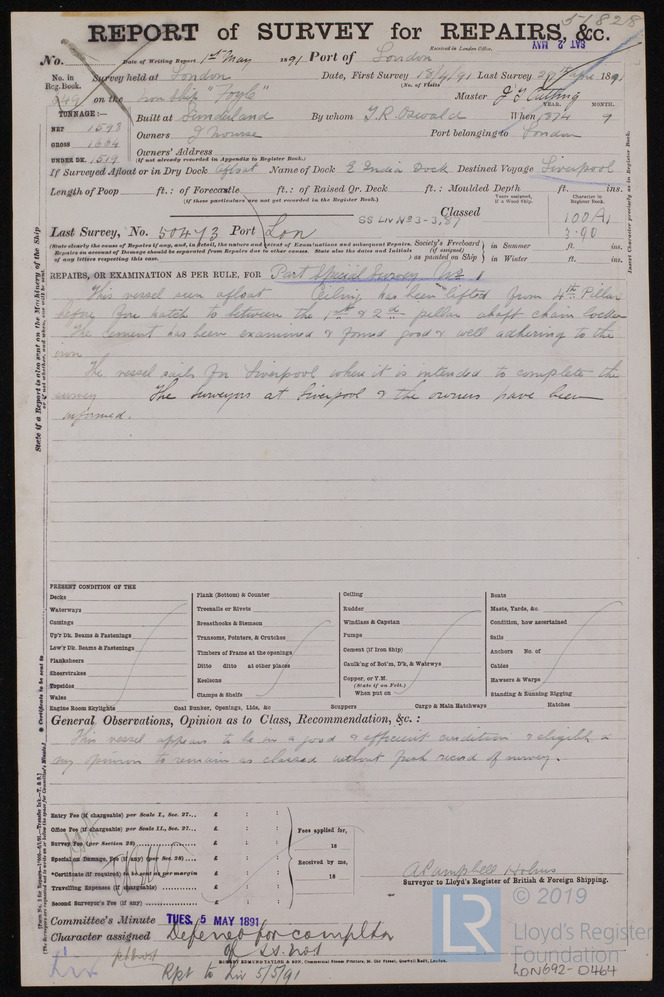 51828
REPORT of SURVEY for REPAIRS, &c.
Received in London Office. SAT. 2 MAY
No. Date of Writing Report 1st May 1891 Port of London
No. in Reg. Book. Survey held at London Date, First Survey 18/4/91 Last Survey 1891
(No. of Visits)
on the Iron Ship "Foyle" Master
TONNAGE:— Built at Sunderland By whom T.R. Oswald When 1874 9
YEAR. MONTH.
NET 1598
GROSS 1664
UNDER DK. 1519
Owners J Nourse Port belonging to London
Owners' Address
(if not already recorded in Appendix to Register Book.)
If Surveyed Afloat or in Dry Dock afloat Name of Dock E India Dock Destined Voyage Liverpool
Length of Poop ft. : of Forecastle ft. : of Raised Qr. Deck ft. : Moulded Depth ft. ins.
(If these particulars are not yet recorded in the Register Book.)
Classed
Years assigned, if a Wood Ship.
Character in Register Book.
SS LIV No 3-3,87
100 A1
3.90
Last Survey, No. 50473 Port Lon
(State clearly the cause of Repairs if any, and, in detail, the nature and extent of Examinations and subsequent Repairs.
Repairs on account of Damage should be separated from Repairs due to other causes. State also the dates and initials
of any letters respecting this case.
Society's Freeboard (if assigned) as painted on Ship
in Summer ft. ins.
in Winter ft. ins.
REPAIRS, OR EXAMINATION AS PER RULE, FOR Part Special Survey No. 1
This vessel seen afloat Ceiling has been lifted from 4th Pillar
before fore hatch to between the 1st & 2d pillar abaft chain locker
The cement has been examined & found good & well adhering to the
iron
The vessel sails for Liverpool where it is intended to complete the
survey The surveyors at Liverpool & the owners have been
informed.
PRESENT CONDITION OF THE
Decks
Waterways
Comings
Up'r Dk. Beams & Fastenings
Low'r Dk. Beams & Fastenings
Planksheers
Sheerstrakes
Topsides
Wales
Engine Room Skylights
Plank (Bottom) & Counter
Treenails or Rivets
Breasthooks & Stemson
Transoms, Pointers, & Crutches
Timbers of Frame at the openings
Ditto ditto at other places
Keelsons
Clamps & Shelfs
Coal Bunker, Openings, Lids, &c
Ceiling
Rudder
Windlass & Capstan
Pumps
Cement (if Iron Ship)
Caulk'ng of Bot'm, D'k, & Watrwys
Copper, or Y.M.
(State if on Felt.)
When put on
Scuppers
Boats
Masts, Yards, &c.
Condition, how ascertained
Sails
Anchors No. of
Cables
Hawsers & Warps
Standing & Running Rigging
Cargo & Main Hatchways
Hatches
General Observations, Opinion as to Class, Recommendation, &c. :
This vessel appears to be in a good & efficient condition & eligible in
my opinion to remain as classed without fresh record of survey.
Entry Fee (if chargeable) per Scale I., Sec. 27... £ : :
Office Fee (if chargeable) per Scale II., Sec. 27... £ : :
Survey Fee (per Section 28) £ : :
Special or Damage, Fee (if any) (per Sec. 28)... £ : :
Certificate (if required) to be sent as per margin £ : :
Travelling Expenses (if chargeable) £ : :
Second Surveyor's Fee (if any) £ : :
Fees applied for,
18
Received by me,
18
A Campbell Holms
Surveyor to Lloyd's Register of British & Foreign Shipping.
Committee's Minute TUES. 5 MAY 1891
Character assigned Deferred for compltn
of SS. No1
Rpt to Liv 5/5/91
ROBERT EDMUND TAYLOR & SON, Commercial Steam Printers, 19, Old Street, Goswell Road, London.
© 2019
LR
Lloyd's Register
Foundation
LON692-0464